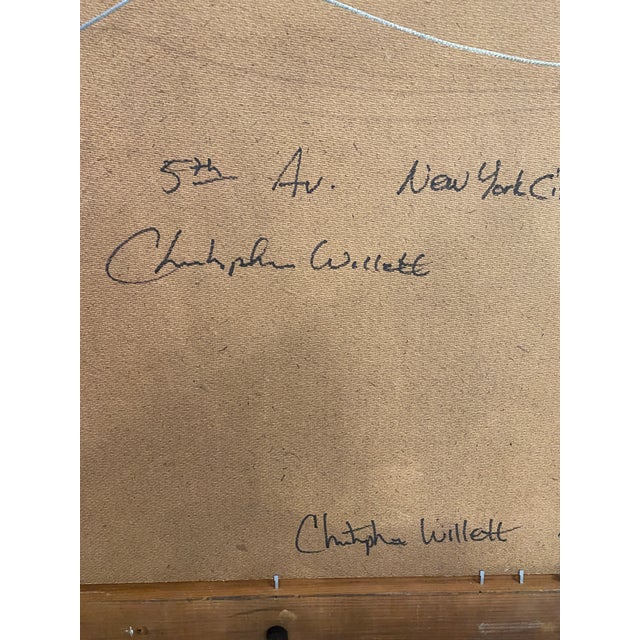 5th Av. New York Ci
Christopher Willett
Christopher Willett